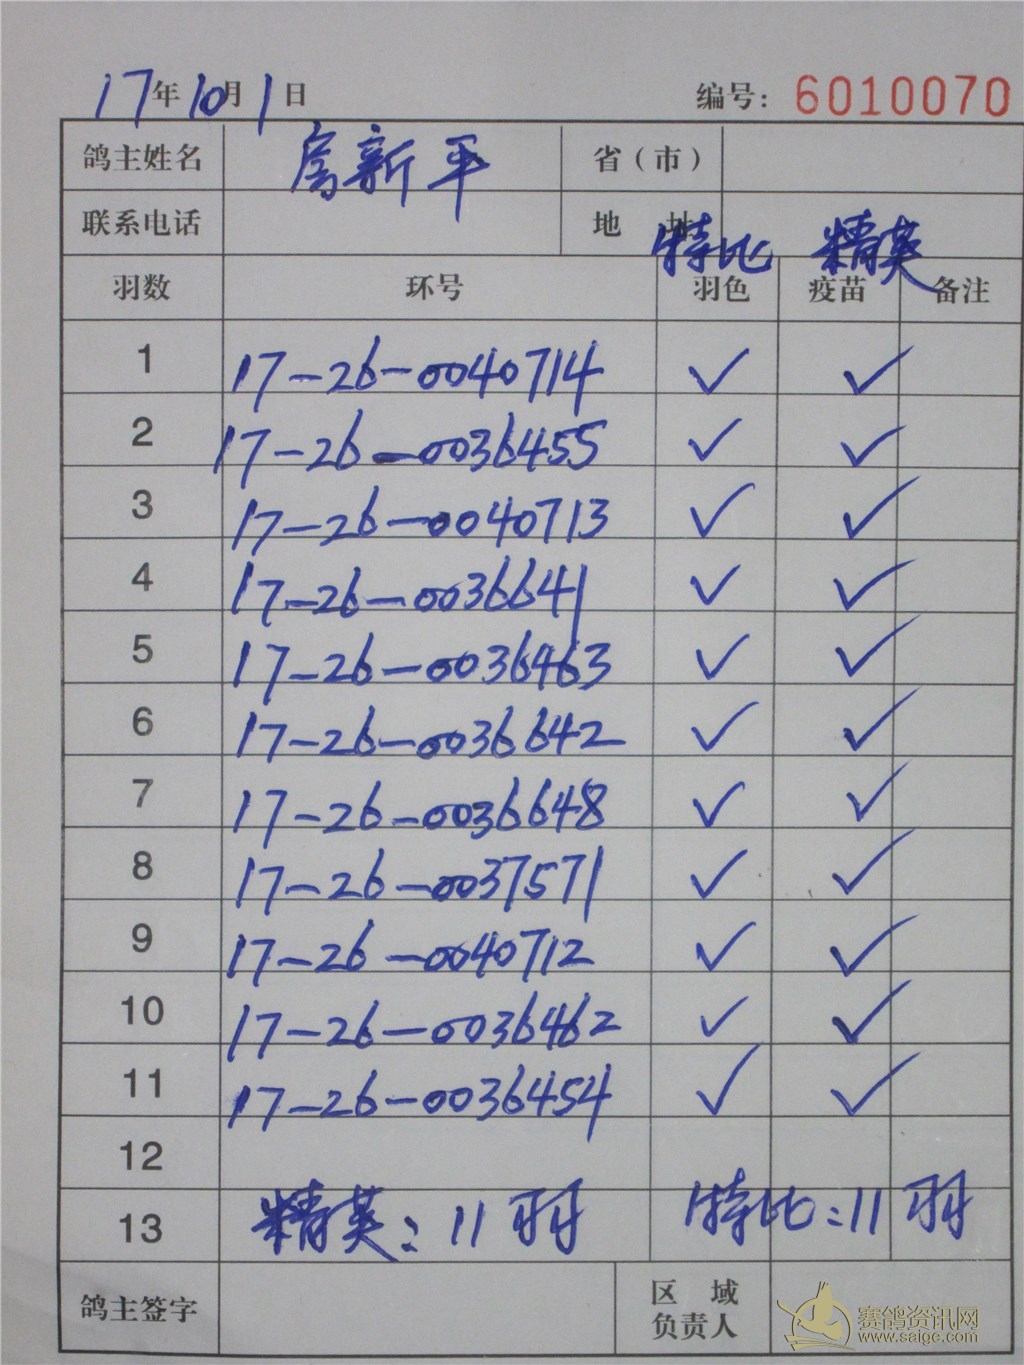 17年10月1日 编号: 6010070
鸽主姓名 房新平 省（市）
联系电话 地 址
特比 精英
羽数 环号 羽色 疫苗 备注
1 17-26-0040714 ✓ ✓
2 17-26-0036455 ✓ ✓
3 17-26-0040713 ✓ ✓
4 17-26-0036641 ✓ ✓
5 17-26-0036463 ✓ ✓
6 17-26-0036642 ✓ ✓
7 17-26-0036648 ✓ ✓
8 17-26-0037571 ✓ ✓
9 17-26-0040712 ✓ ✓
10 17-26-0036462 ✓ ✓
11 17-26-0036454 ✓ ✓
12
13 精英: 11羽 特比: 11羽
鸽主签字 区 域
负责人
赛鸽资讯网
www.saige.com